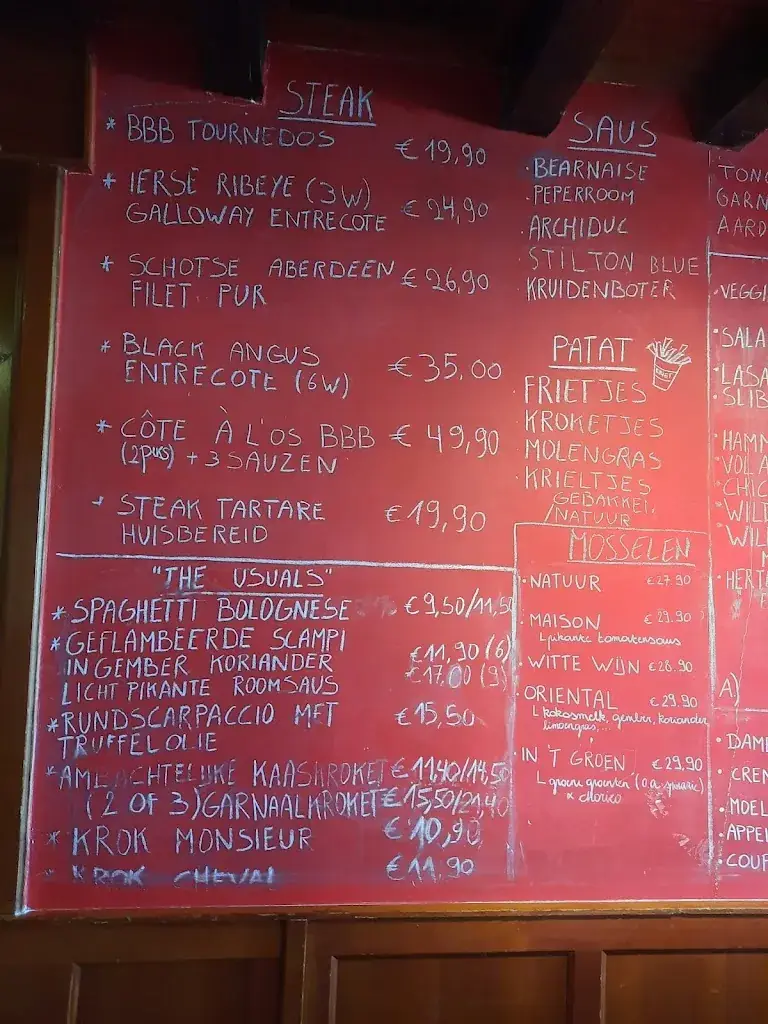 STEAK
* BBB TOURNEDOS € 19,90
* IERSE RIBEYE (3W)
GALLOWAY ENTRECOTE € 24,90
* SCHOTSE ABERDEEN
FILET PUR € 26,90
* BLACK ANGUS
ENTRECOTE (6W) € 35,00
* CÔTE À L'OS BBB € 49,90
(2PERS) + 3 SAUZEN
* STEAK TARTARE
HUISBEREID € 19,90
"THE USUALS"
* SPAGHETTI BOLOGNESE € 9,50/11,50
* GEFLAMBEERDE SCAMPI
IN GEMBER KORIANDER
LICHT PIKANTE ROOMSAUS
€ 11,90 (6)
€ 17.00 (9)
* RUNDSCARPACCIO MET
TRUFFELOLIE € 15,50
* AMBACHTELIJKE KAASKROKET € 11,40/14,50
(2 OF 3) GARNAALKROKET € 15,50/21,40
* KROK MONSIEUR € 10,90
* KROK CHEVAL € 11,90
SAUS
· BEARNAISE
· PEPERROOM
· ARCHIDUC
· STILTON BLUE
· KRUIDENBOTER
PATAT
· FRIETJES
· KROKETJES
· MOLENGRAS
· KRIELTJES
GEBAKKEN
/NATUUR
MOSSELEN
· NATUUR € 27.90
· MAISON € 29.90
pikante tomatensaus
· WITTE WIJN € 28.90
· ORIENTAL € 29.90
kokosmelk, gember, koriander,
limoengras,...
· IN 'T GROEN € 29,90
groene groenten (o.a.
chorico
GARN
AARD
· VEGGI
· SALA
· LASA
· HAMM
VOL A
· CHIC
· WILD
· WILD
· HERT
A)
· DAM
· CREM
· MOEL
· APPE
· COUP